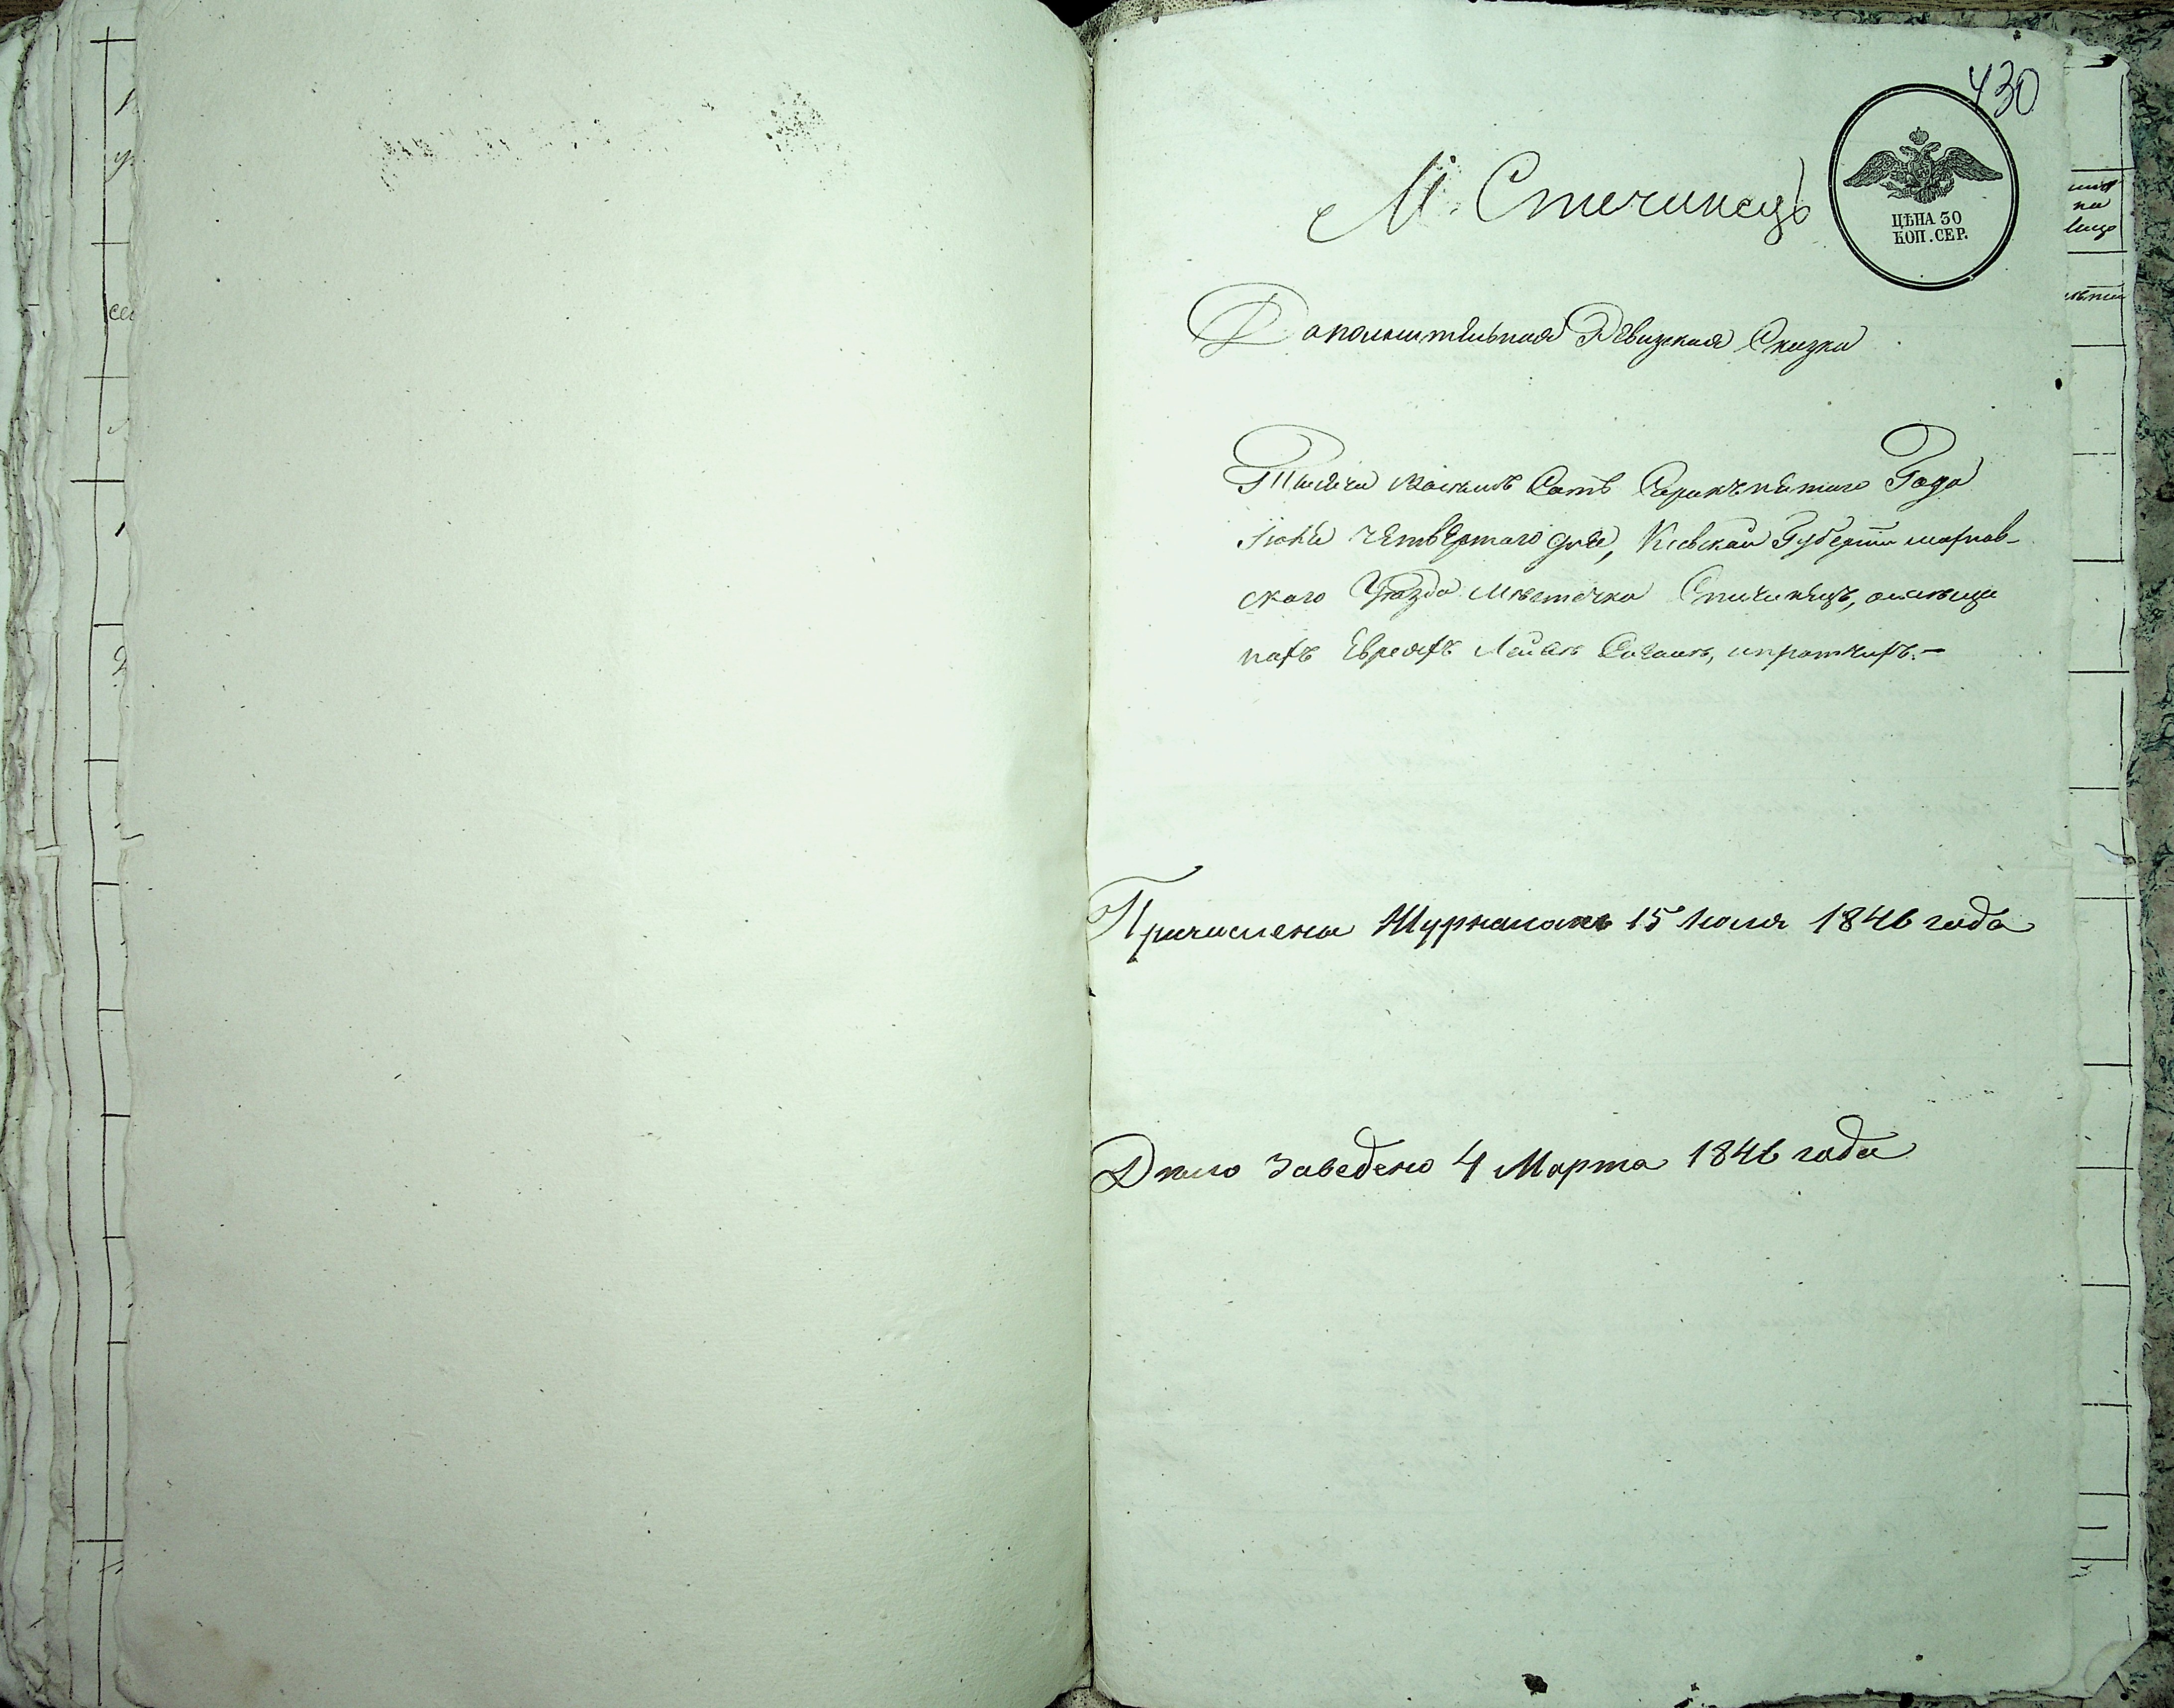 430
М. Стечинецъ
ЦѢНА 30
КОП. СЕР.
Дополнительная Ревизская Сказка
Тысяча восемь Сотъ Сорокъ пятаго Года
Іюня четвертаго дня, Кіевской Губерніи
скаго Уѣзда Мѣстечка Стичинецъ,
нахъ Евреяхъ
Причислены Журналомъ 15 Іюля 1846 года
Дѣло Заведено 4 Марта 1846 года